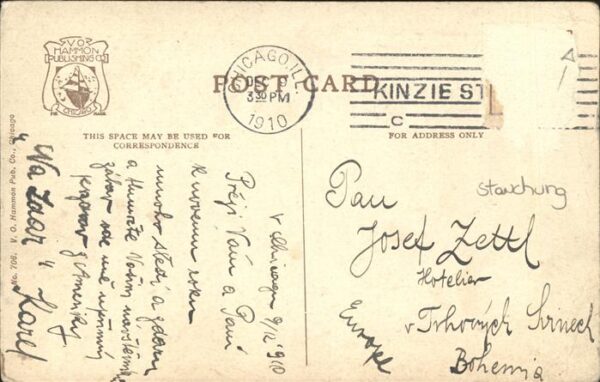 V.O.
HAMMON
PUBLISHING CO.
CHICAGO
POST CARD
CHICAGO, ILL.
DEC 9
3 30 PM
1910
KINZIE ST
C
L
THIS SPACE MAY BE USED FOR
CORRESPONDENCE
FOR ADDRESS ONLY
No. 706. V. O. Hammon Pub. Co., Chicago
v Chicagu 9/12 1910
Přeji Vám a Paní
k novému roku
mnoho štěstí a zdaru
a
zábav
pozdrav z Ameriky
"Na Zdar" Karel
Pan
Josef Zettl
Hotelier
v Trhových Svinech
Bohemia
Europe
stauchung